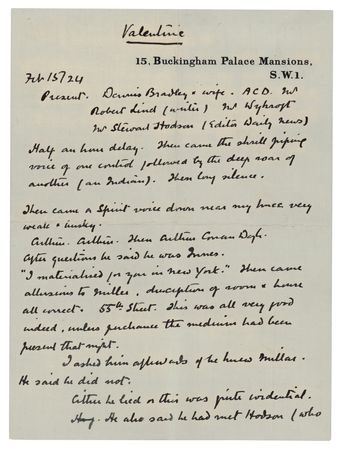 Valentine
15, Buckingham Palace Mansions,
S.W.1.
Feb 15/24
Present. Dennis Bradley & wife. A.C.D. Mr
Robert Lind (writer) Mr
Mr Stewart Hodson (Editor Daily News)
Half an hour delay. Then came the shrill piping
voice of one control followed by the deep roar of
another (an Indian). Then long silence.
Then came a Spirit voice down near my knee very
weak & husky.
Arthur. Arthur. Then Arthur Conan Doyle.
After questions he said he was Innes.
"I materialised for you in New York." Then came
allusions to Millar, description of room & house
all correct. 55th Street. This was all very good
indeed, unless perchance the medium had been
present that night.
I asked him afterwards if he knew Millar.
He said he did not.
Either he lied or this was quite evidential.
He also said he had met Hodson (who